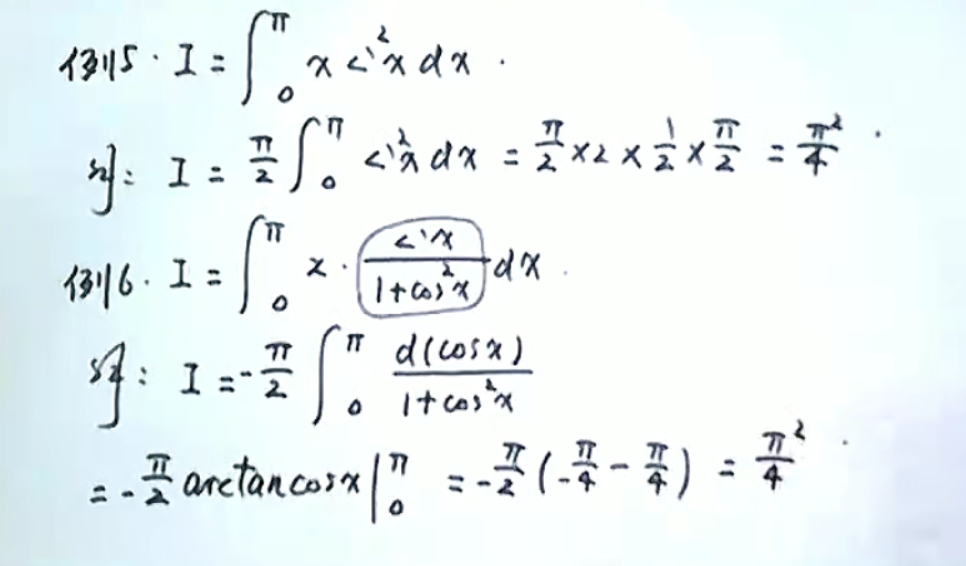 例5. I = ∫₀^π x sin²x dx.
解: I = π/2 ∫₀^π sin²x dx = π/2 × 2 × 1/2 × π/2 = π²/4.
例6. I = ∫₀^π x · sinx/(1+cos²x) dx.
解: I = -π/2 ∫₀^π d(cosx)/(1+cos²x)
= -π/2 arctancosx |₀^π = -π/2 (-π/4 - π/4) = π²/4.